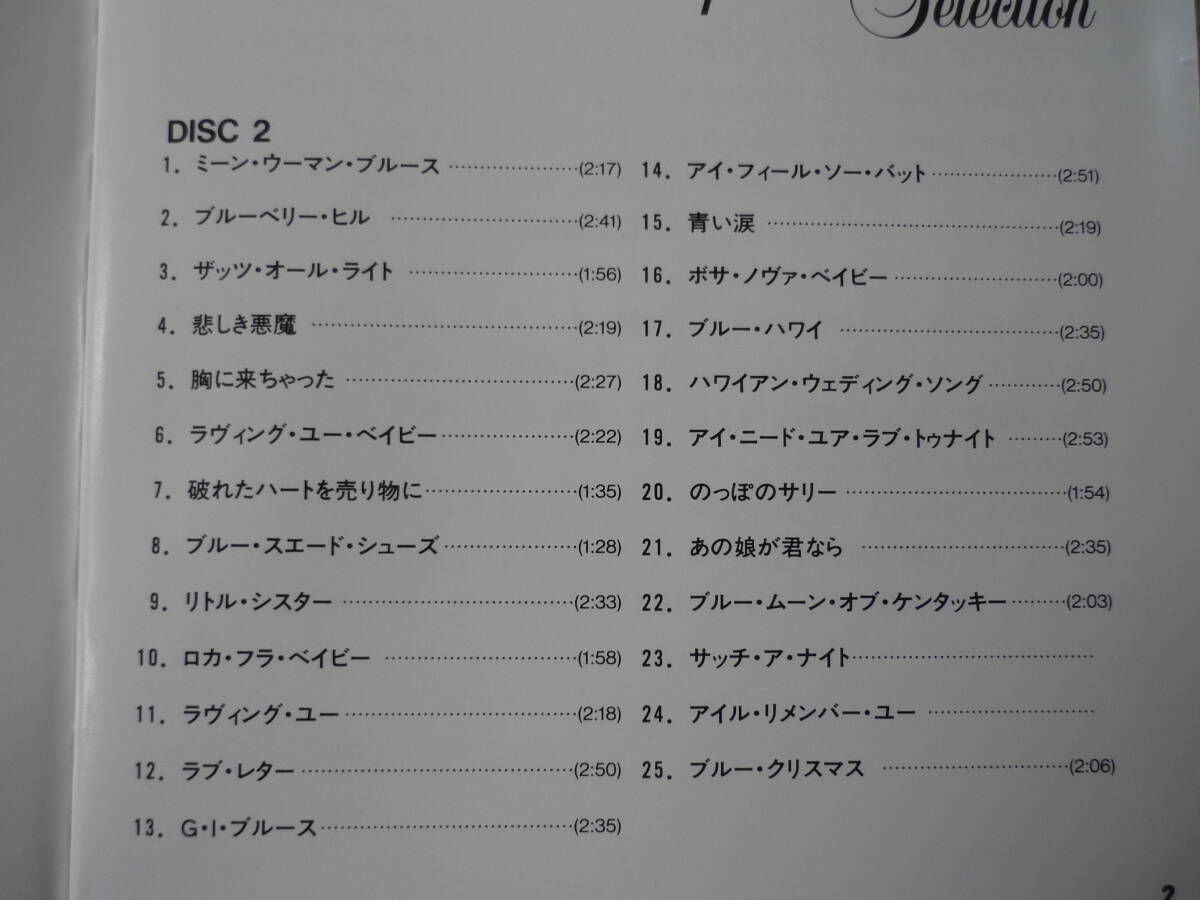 Selection
DISC 2
1. ミーン・ウーマン・ブルース ……………………(2:17)
2. ブルーベリー・ヒル ……………………(2:41)
3. ザッツ・オール・ライト ……………………(1:56)
4. 悲しき悪魔 ……………………(2:19)
5. 胸に来ちゃった ……………………(2:27)
6. ラヴィング・ユー・ベイビー ……………………(2:22)
7. 破れたハートを売り物に ……………………(1:35)
8. ブルー・スエード・シューズ ……………………(1:28)
9. リトル・シスター ……………………(2:33)
10. ロカ・フラ・ベイビー ……………………(1:58)
11. ラヴィング・ユー ……………………(2:18)
12. ラブ・レター ……………………(2:50)
13. G・I・ブルース ……………………(2:35)
14. アイ・フィール・ソー・バット ……………………(2:51)
15. 青い涙 ……………………(2:19)
16. ボサ・ノヴァ・ベイビー ……………………(2:00)
17. ブルー・ハワイ ……………………(2:35)
18. ハワイアン・ウェディング・ソング ……………………(2:50)
19. アイ・ニード・ユア・ラブ・トゥナイト ……………………(2:53)
20. のっぽのサリー ……………………(1:54)
21. あの娘が君なら ……………………(2:35)
22. ブルー・ムーン・オブ・ケンタッキー ……………………(2:03)
23. サッチ・ア・ナイト ……………………
24. アイル・リメンバー・ユー ……………………
25. ブルー・クリスマス ……………………(2:06)
2